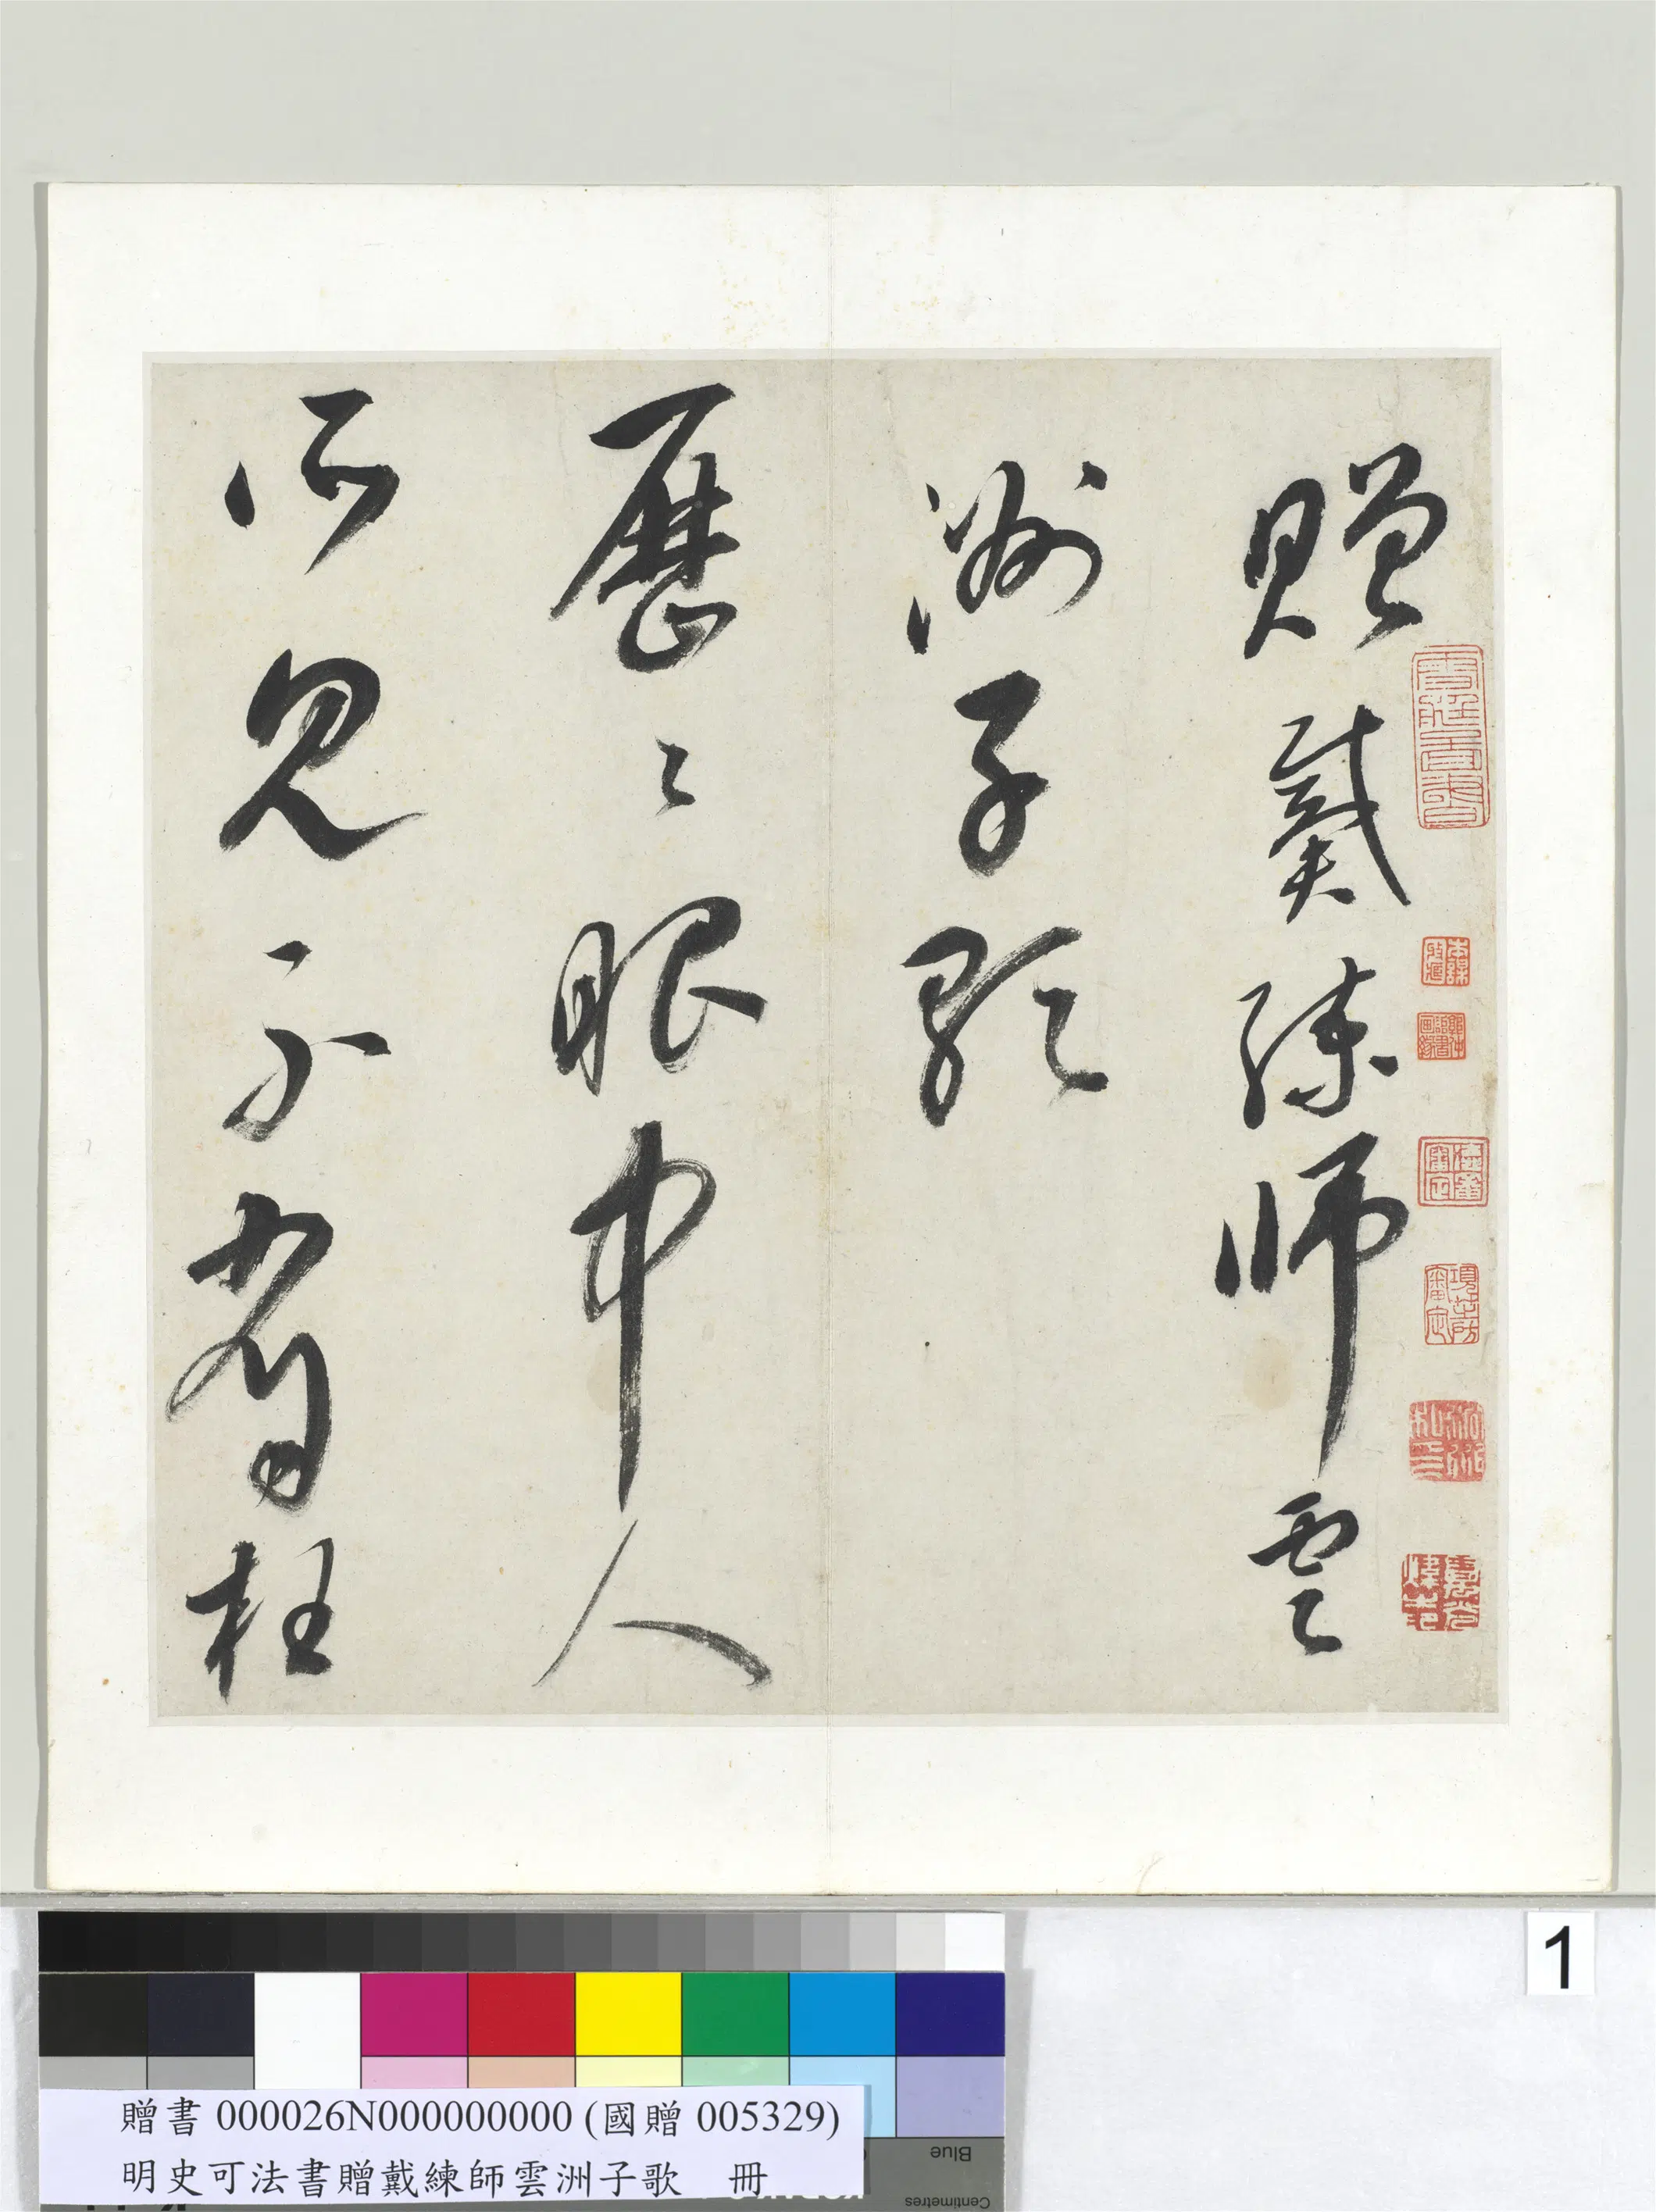 贈戴練師雲
洲子歌
歷〻眼中人
所見不嘗枉
1
贈書 000026N000000000 (國贈 005329)
明史可法書贈戴練師雲洲子歌 冊
Blue
Centimetres